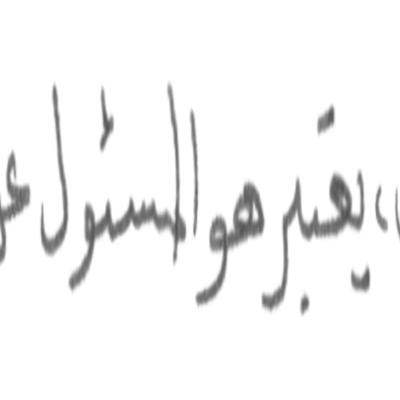 ، يعتبر هو المسئول